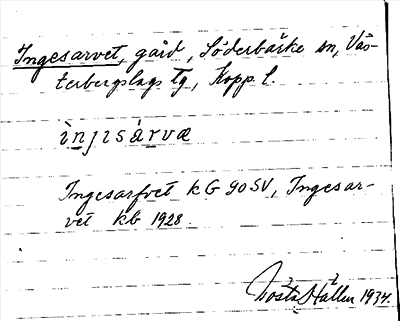 Ingesarvet, gård, Söderbärke sn, Väs-
terbergslags Tg, Kopp. l.
ìnjısárvæ
Ingesarfvet kG 90SV, Ingesar-
vet kb 1928
Gösta Hállen 1934.